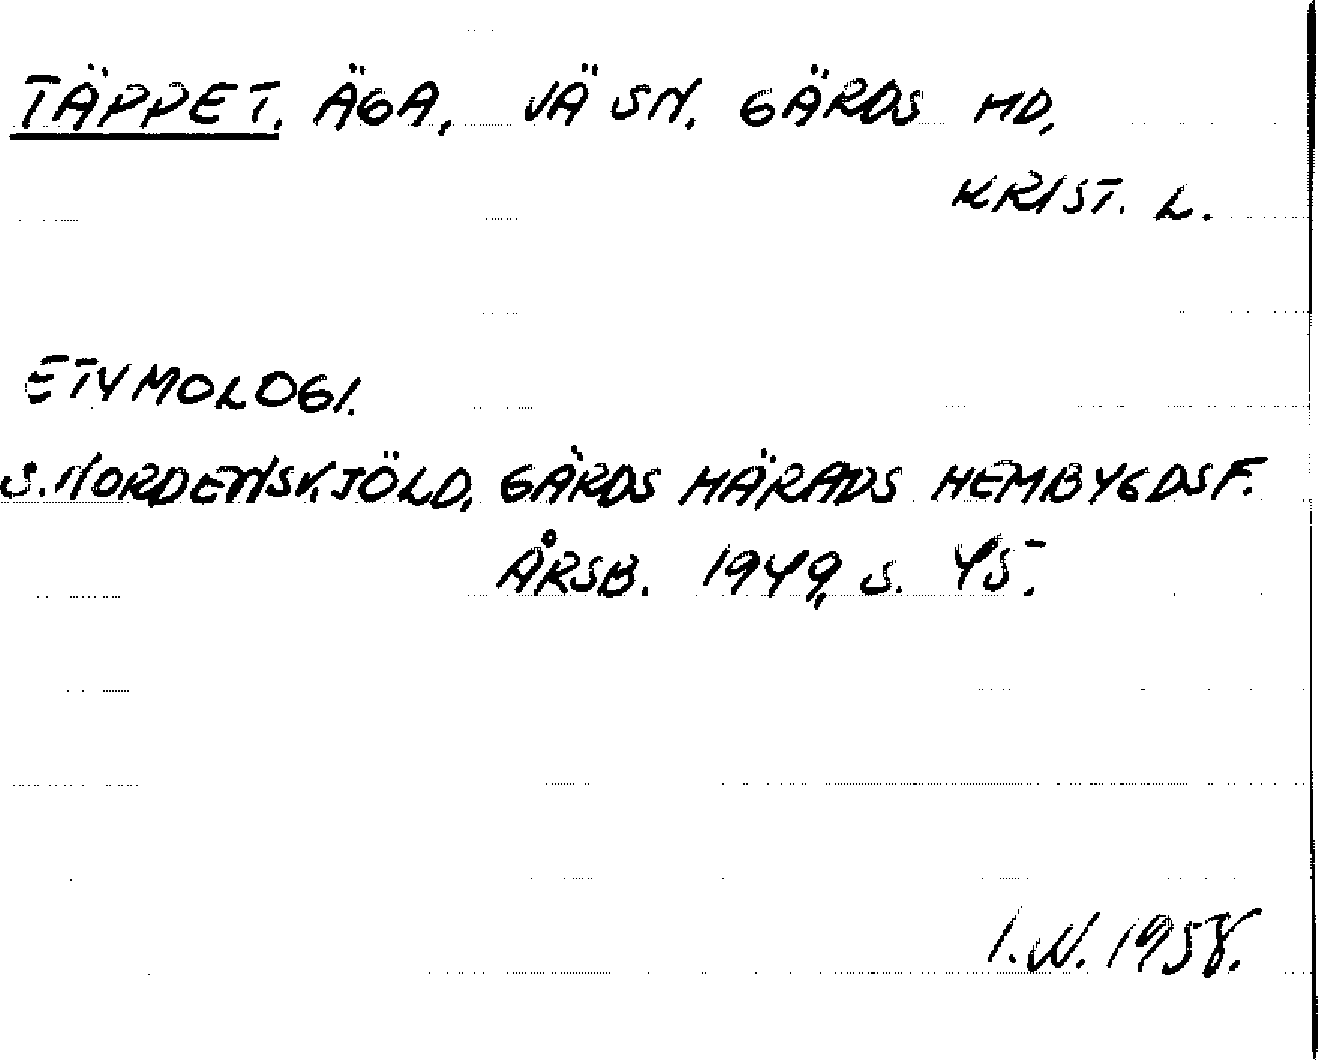 TÄPPET. ÄGA, VÄ SN. GÄRDS HD,
KRIST. L.
ETYMOLOGI.
S. NORDENSKJÖLD, GÄRDS HÄRADS HEMBYGDSF.
ÅRSB. 1949, S. 45.
I.N. 1958.